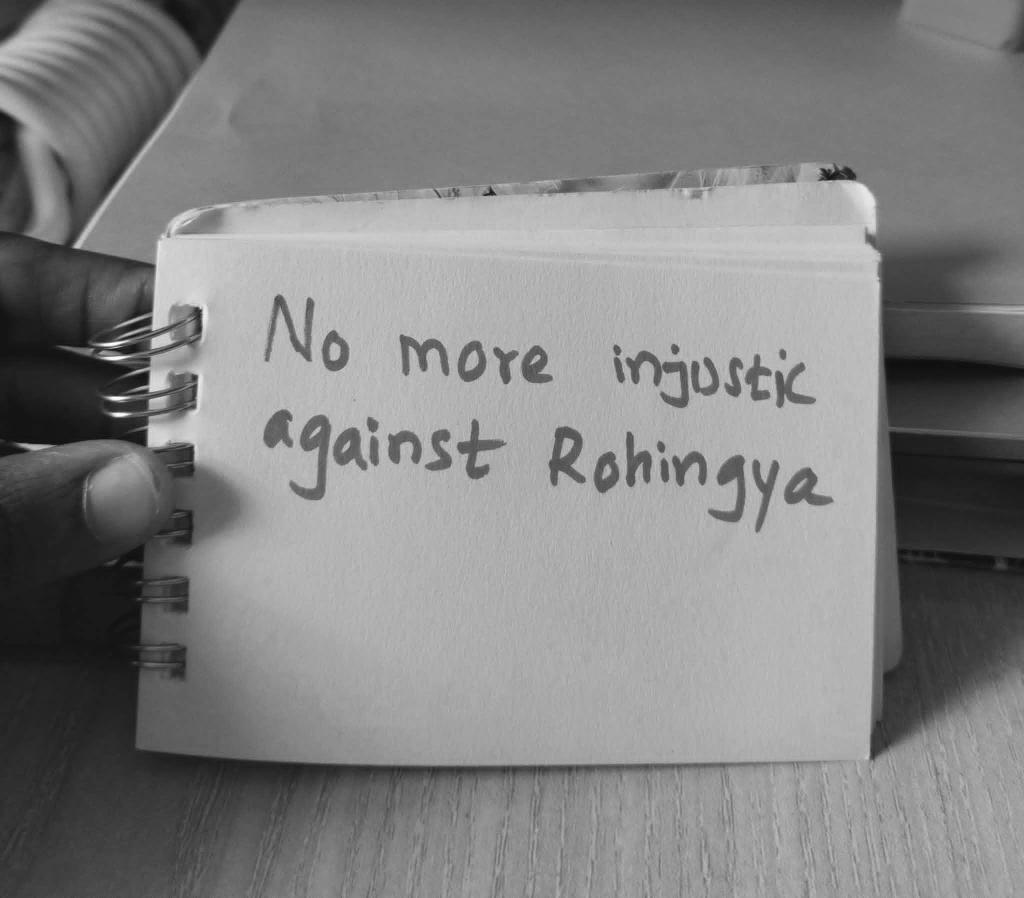 No more injustic
against Rohingya